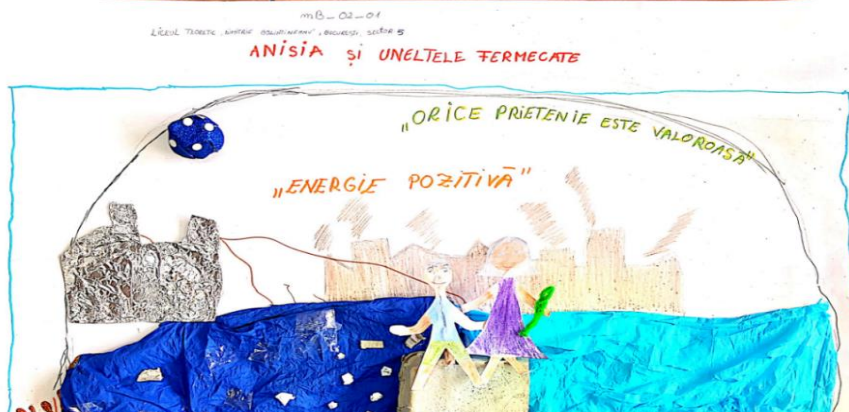 mB_02_01
LICEUL TEORETIC „DIMITRIE BOLINTINEANU”, BUCUREȘTI, SECTOR 5
ANISIA ȘI UNELTELE FERMECATE
„ORICE PRIETENIE ESTE VALOROASĂ”
„ENERGIE POZITIVĂ”